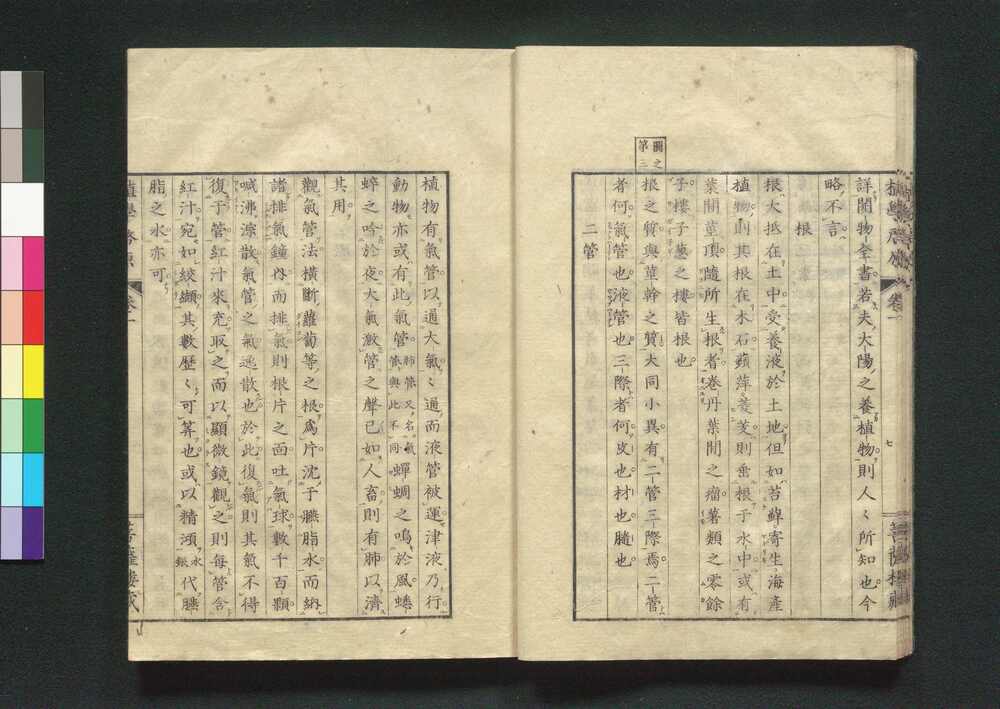 詳開物全書若夫太陽之養植物則人〻所知也今
略不言
根
根大抵在土中受養液於土地但如苔蘚寄生海產
植物則其根在木石蘋萍菱芡則垂根于水中或有
葉間莖頂隨所生根者卷丹葉間之瘤薯類之零餘
子樓子葱之樓皆根也
圖之第三
根之質與莖幹之質大同小異有二管三際焉二管
者何氣管也液管也三際者何皮也材也髓也
二管
植學啓原 卷一
七
菩薩樓藏
植物有氣管以通大氣〻通而液管被運津液乃行
動物亦或有此氣管肺管又名氣管與此不同蟬蜩之鳴於風蟋
蟀之吟於夜大氣激管之聲已如人畜則有肺以濟
其用
觀氣管法橫斷蘿蔔等之根爲片沈于臙脂水而納
諸排氣鐘內而排氣則根片之面吐氣球數千百顆
喊沸淙散氣管之氣逃散也於此復氣則其氣不得
復于管紅汁來充取之而以顯微鏡觀之則每管含
紅汁宛如絞纈其數歷〻可筭也或以精須水銀代臙
脂之水亦可
植學啓原 卷一
菩薩樓藏